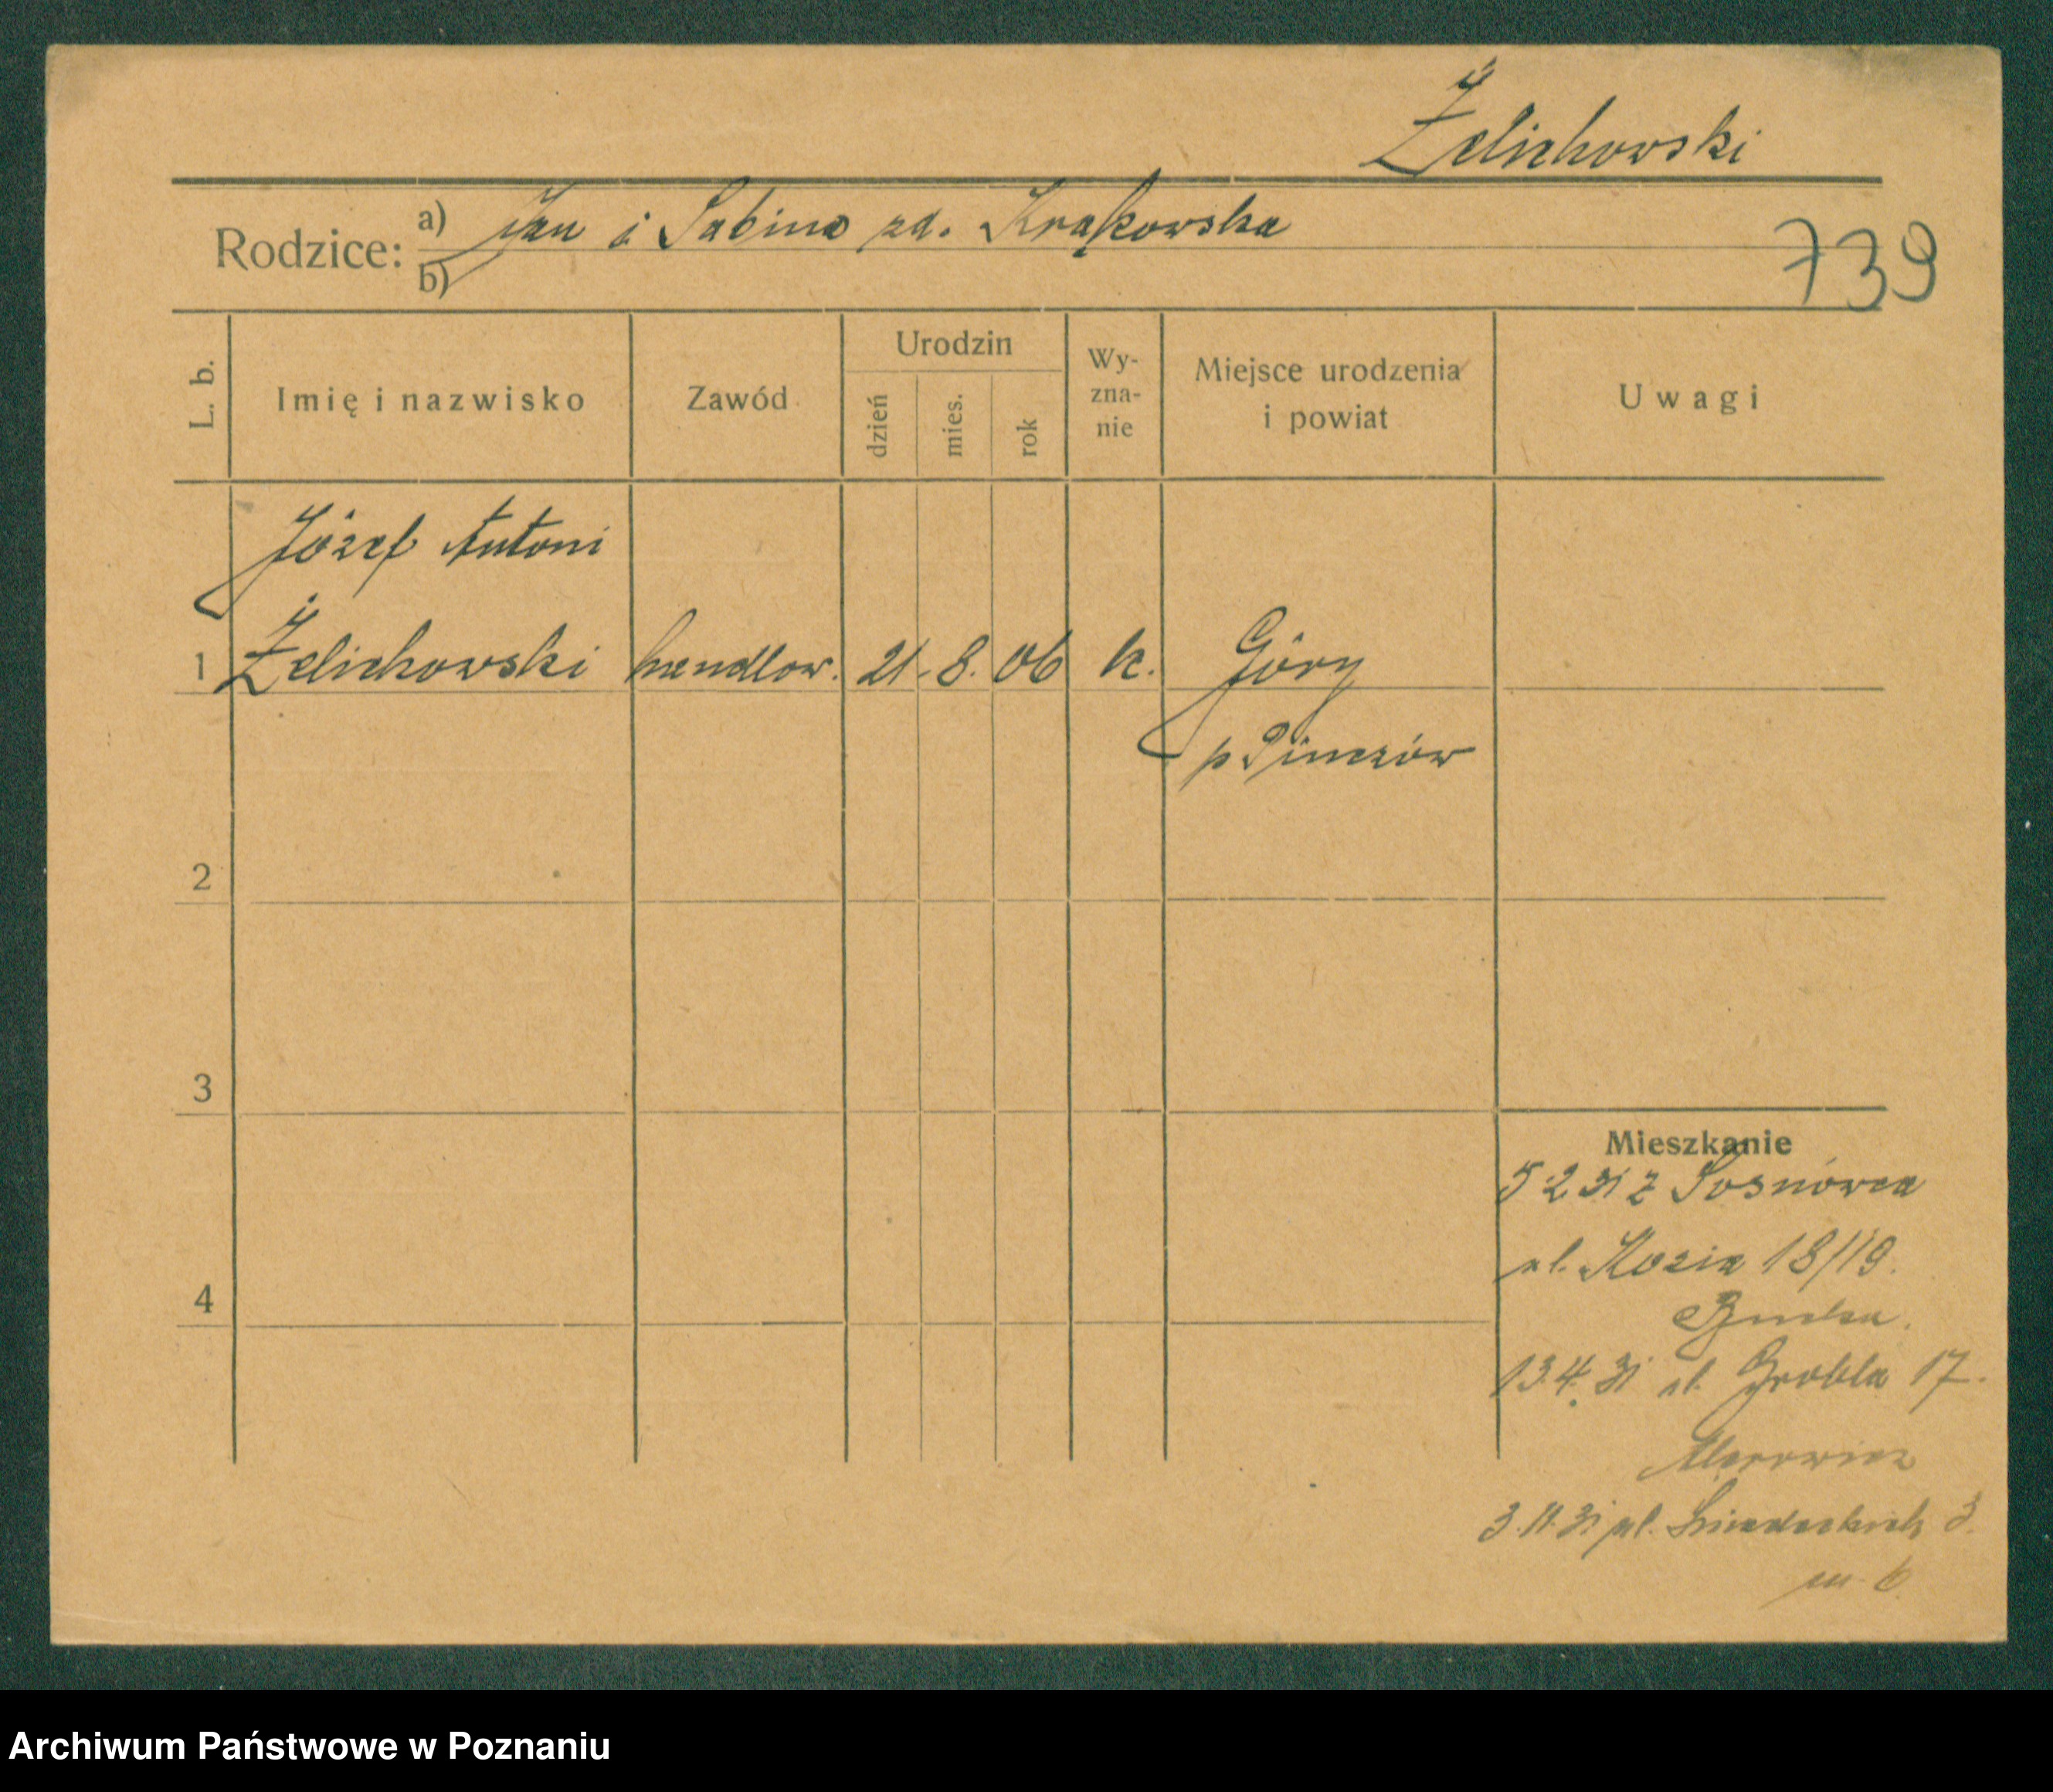 Żelichowski
Rodzice: a) Jan i Sabina zd. Krakowska
b)
739
L. b.
Imię i nazwisko
Zawód
Urodzin
dzień
mies.
rok
Wy-
zna-
nie
Miejsce urodzenia
i powiat
Uwagi
Józef Antoni
1 Żelichowski handlow. 21. 8. 06 k. Góry
p Pinczów
2
3
4
Mieszkanie
5.2.31 z Sosnowca
ul. Kozia 18/19.
13.4.31 ul. Grobla 17.
3.11.31 pl. 3.
m. 6
Archiwum Państwowe w Poznaniu